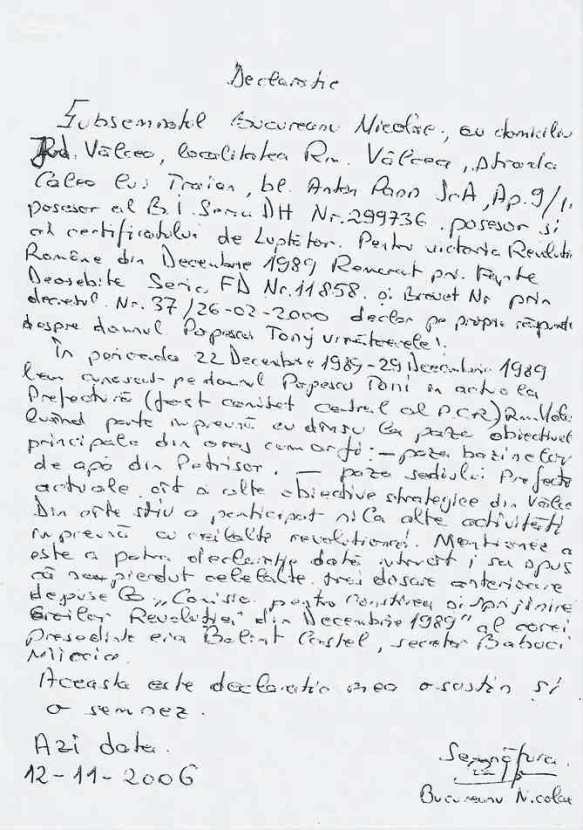 Declaratie
Subsemnatul Bucureanu Nicolae, cu domiciliu
Jud. Vâlcea, localitatea Rm. Vâlcea, Strada
Calea lui Traian, bl. Anton Pann Sc A, Ap. 9/1,
posesor al B.I. Seria DH Nr. 299736. posesor si
al certificatului de Luptător. Pentru victoria Revolutiei
Române din Decembrie 1989 Remarcat prin Fapte
Deosebite Seria FD Nr. 11858. si Brevet Nr prin
decretul Nr. 37/26-02-2000 declar pe propria răspundere
despre domnul Popescu Tony următoarele!
În perioada 22 Decembrie 1989-29 Decembrie 1989
l-am cunoscut pe domnul Popescu Toni in actuala
Prefectură (fost comitet central al P.C.R) Rm. Vâlcea
luând parte impreună cu dânsu la paza obiectivelor
principale din oras cum ar fi: - paza bazinelor
de apă din Petrisor. - paza sediului Prefecturi
actuale cât a alte obiective strategice din Vâlcea
Din câte stiu a participat si la alte activităti
impreună cu ceilalti revolutionari. Mentionez a
este a patra declaratie dată intrucât i sa spus
că sau pierdut celelalte trei dosare anterioare
depuse la "Comisia pentru Cinstirea si Sprijinirea
Eroilor Revolutiei din Decembrie 1989" al carei
presedinte era Balint Costel, secretar Baboci
Mircia.
Aceasta este declaratia mea o sustin si
o semnez.
Azi data.
12-11-2006
Semnătura.
Bucureanu Nicolae